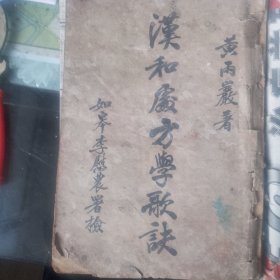 黃雨巖著
漢和處方學歌訣
如皋李慰農署檢